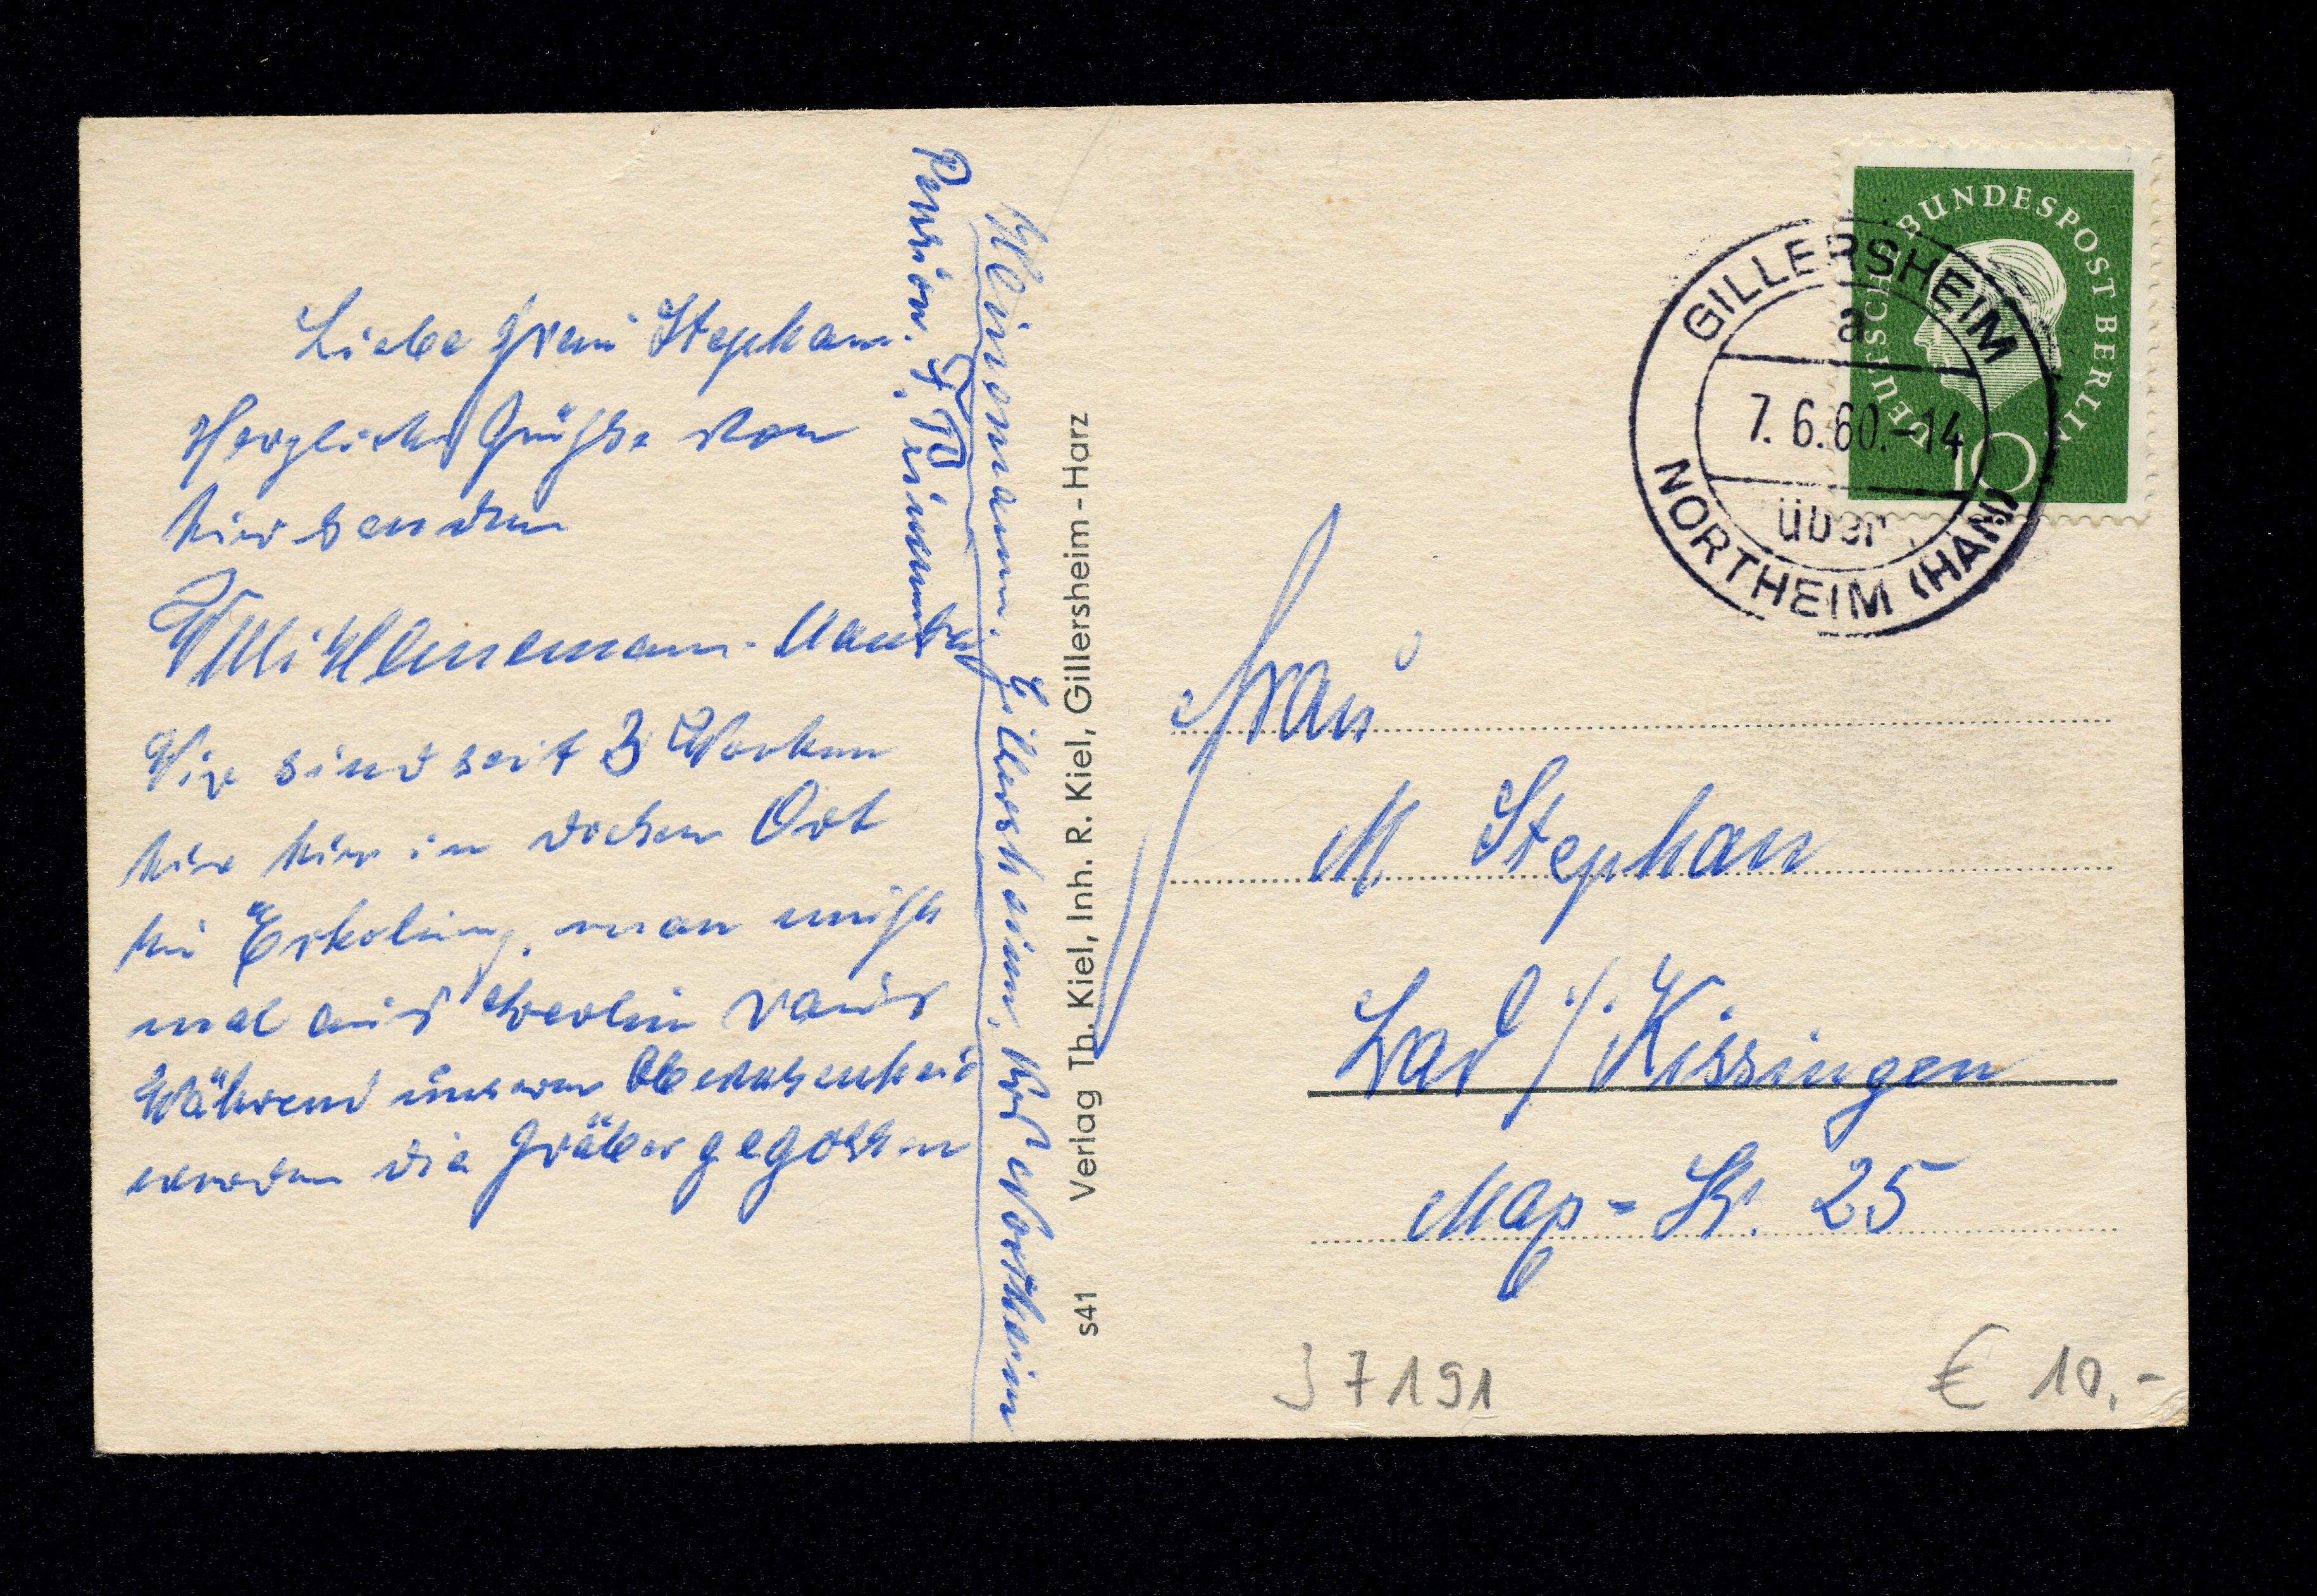 Liebe Frau Stephan.
Herzliche Grüsse von
hier senden
Willi Heinemann
Wir sind seit 3 Wochen
hier hier in diesem Ort
zur Erholung, man muß
mal aus Berlin raus
Während unserer Abwesenheit
werden die Gräber gegossen
Pension
Gillersheim, Krs Northeim
Verlag Th. Kiel, Inh. R. Kiel, Gillersheim-Harz
s41
DEUTSCHE BUNDESPOST BERLIN
10
GILLERSHEIM
a
7.6.60.-14
über
NORTHEIM (HAN)
Frau
M Stephan
Bad / Kissingen
Max-Str. 25
J 7191
€ 10.-